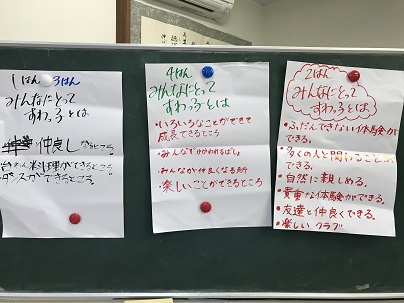 1はん 3はん
みんなにとって
すわっ3とは
仲良しなところ
料理ができるところ
ダンスができるところ。
4はん
みんなにとって
すわっ3とは
・いろいろなことができて
成長できるところ
・みんなが仲良くなる所
・楽しいことができるところ
2はん
みんなにとって
すわっ3とは
・ふだんできない体験が
できる。
・多くの人と関わることが
できる。
・自然に親しめる。
・貴重な体験ができる。
・友達と仲良くできる。
・楽しいクラブ